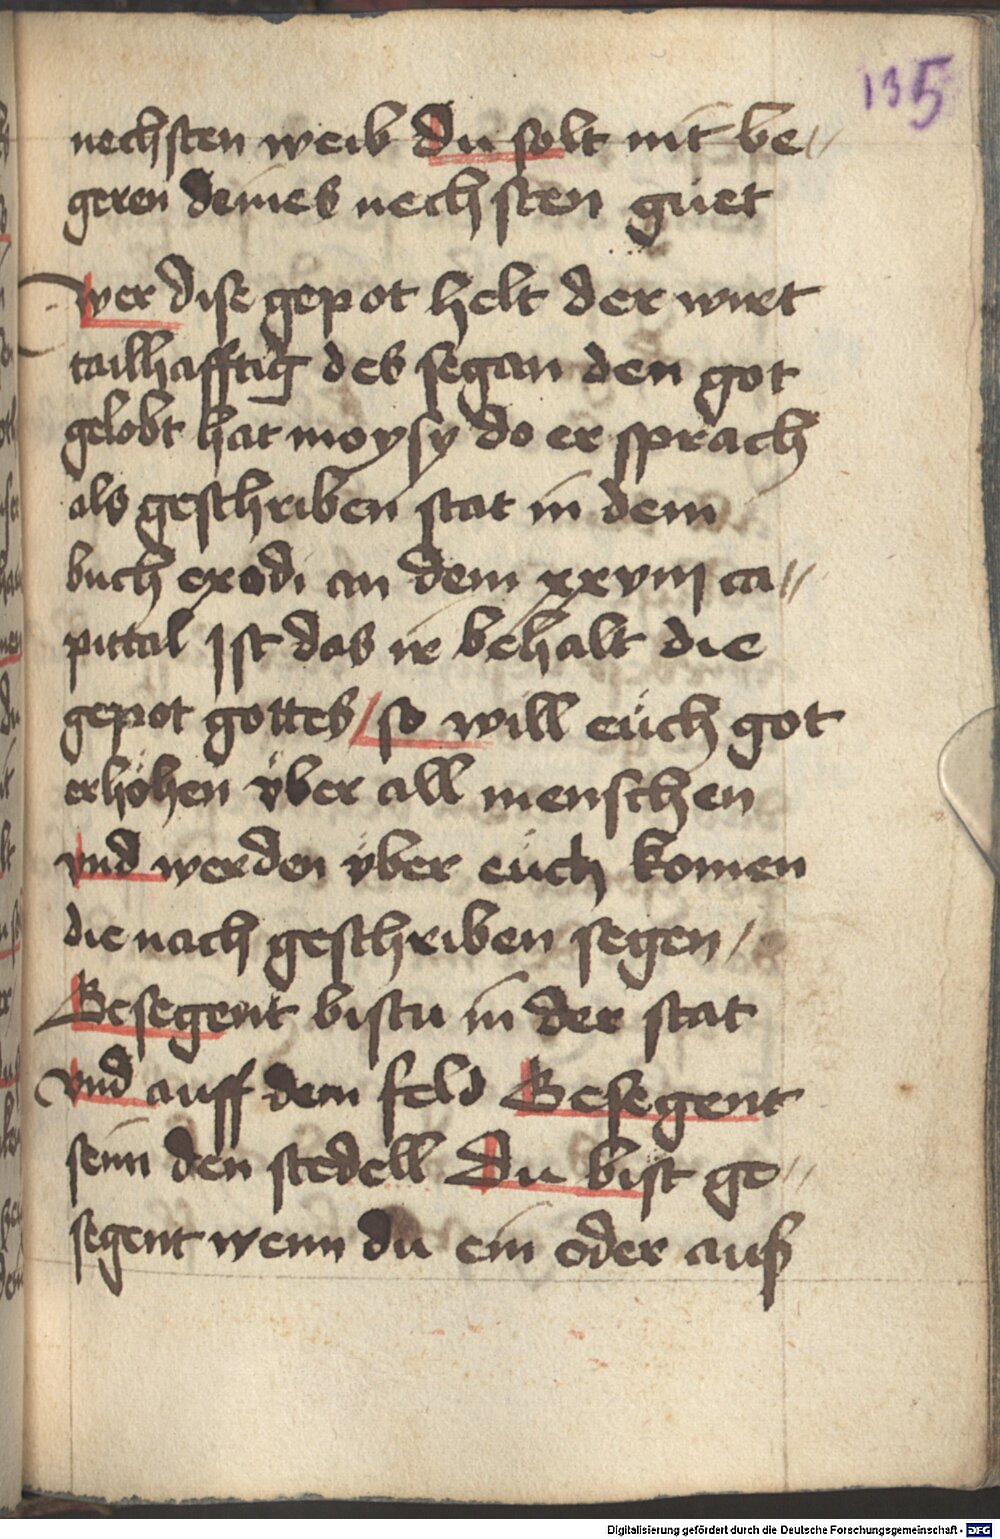 135
nechsten weib du solt nit be//
geren deines nechsten güet
wer dise gepot helt der wirt
tailhafftig des segan den got
gelobt hat moysy do er sprach
als geschriben stat in dem
buch exodi an dem xxviij ca//
pittal Ist das ir behalt die
gepot gottes / so will eüch got
erhöhen über all menschen
vnd werden über eüch komen
die nach geschriben segen /
Besegent bistu in der stat
vnd auff dem feld Besegent
seinn den stedell Du bist ge//
segent wenn du ein oder auß
Digitalisierung gefördert durch die Deutsche Forschungsgemeinschaft - DFG